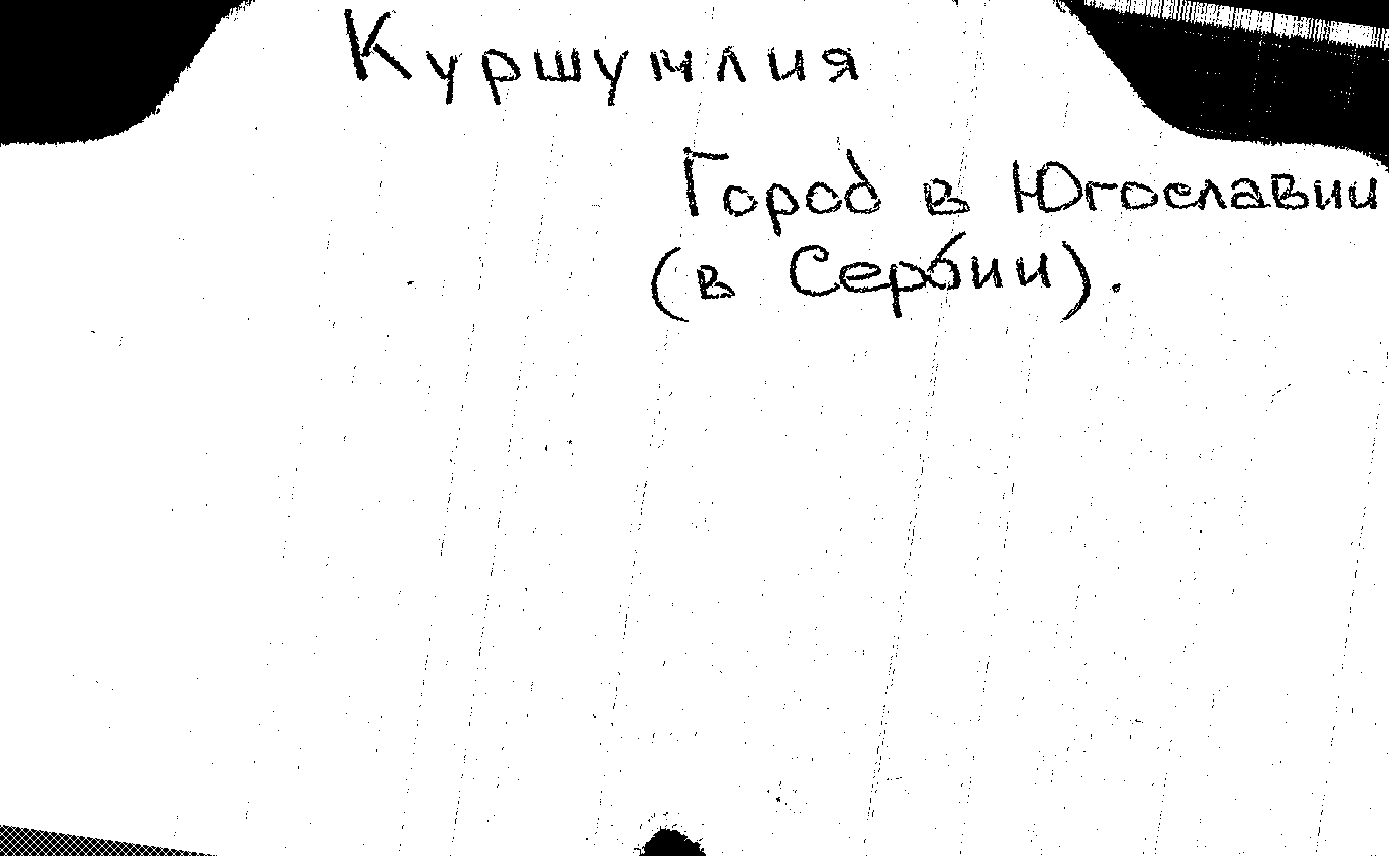 Куршумлия
Город в Югославии
(в Сербии).